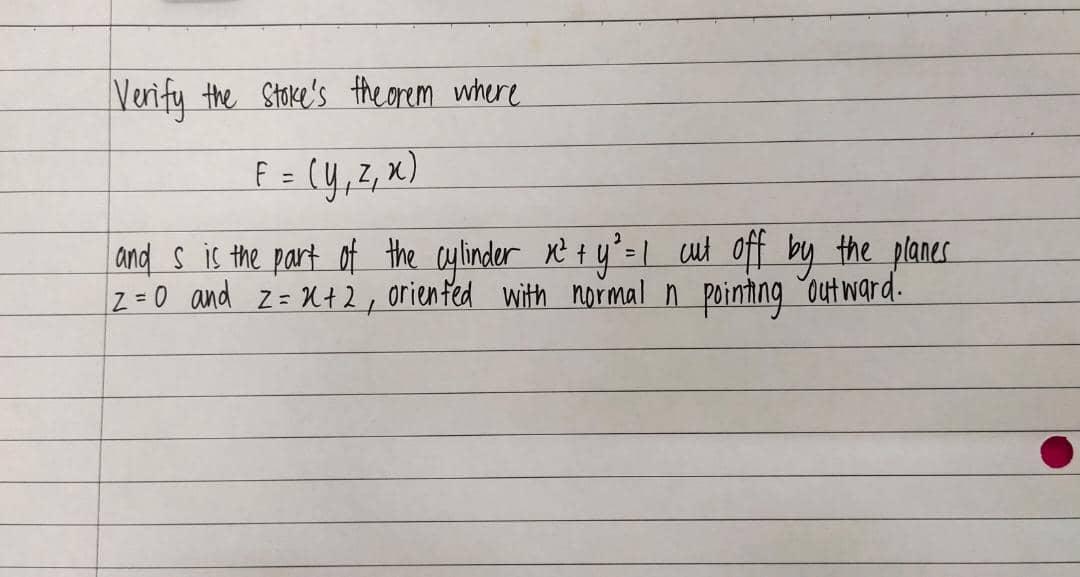 Verify the Stoke's theorem where
F = (y, z, x)
and s is the part of the cylinder x² + y² = 1 cut off by the planes
z = 0 and z = x + 2, oriented with normal n pointing outward.